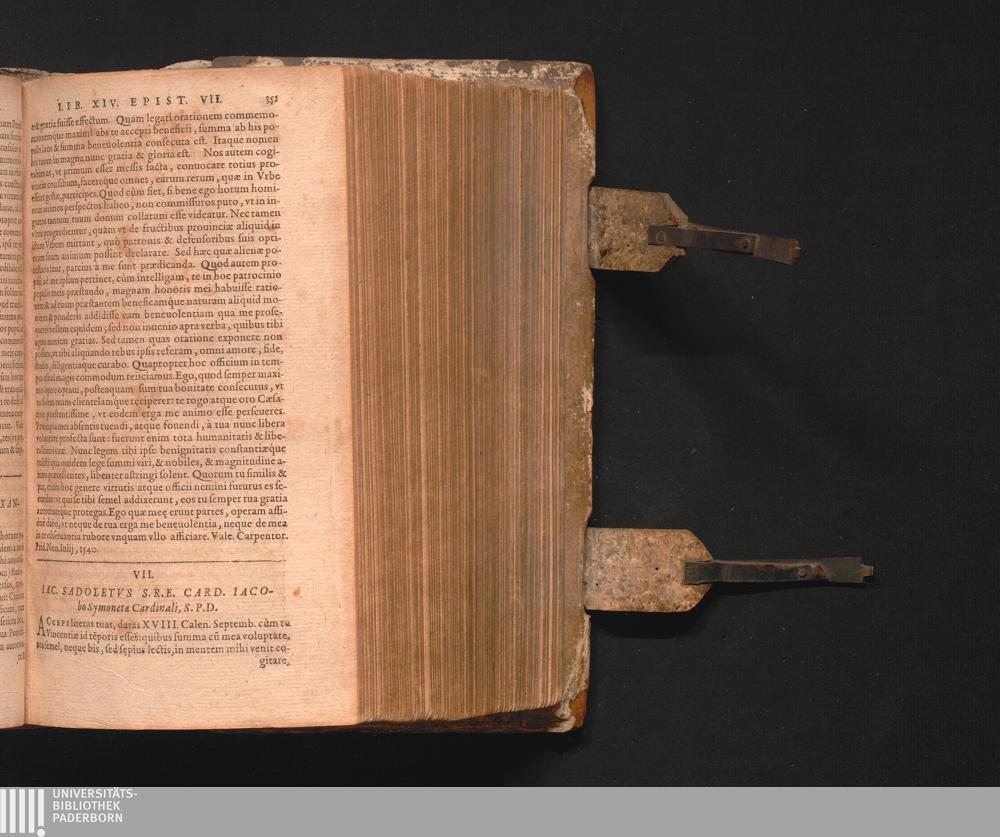 LIB. XIV. EPIST. VII. 351
gratia fuisse effectum. Quam legati orationem commemo-
maximi abs te accepti beneficii, summa ab his po-
laus & summa beneuolentia consecuta est. Itaque nomen
tuum in magna nunc gratia & gloria est. Nos autem cogi-
vt primum esset messis facta, conuocare totius pro-
consilium, facereque omnes, earum rerum, quæ in Vrbe
gestæ, participes. Quod cùm fiet, si bene ego horum homi-
animos perspectos habeo, non commissuros puto, vt in in-
gratos tantum tuum donum collatum esse videatur. Nec tamen
progredientur, quàm vt de fructibus prouinciæ aliquid in
istam Vrbem mittant, quò patronis & defensoribus suis opti-
suum animum possint declarare. Sed hæc quæ alienæ po-
sunt, parcius à me sunt prædicanda. Quod autem pro-
ad me ipsum pertinet, cùm intelligam, te in hoc patrocinio
populis meis præstando, magnam honoris mei habuisse ratio-
& ad tuam præstantem beneficamque naturam aliquid mo-
& ponderis addidisse eam beneuolentiam qua me prose-
vellem equidem, sed non inuenio apta verba, quibus tibi
meritas gratias. Sed tamen quas oratione exponere non
tibi aliquando rebus ipsis referam, omni amore, fide,
studio, diligentiaque curabo. Quapropter hoc officium in tem-
aliud magis commodum reiiciamus. Ego, quod semper maxi-
opere optaui, posteaquam sum tua bonitate consecutus, vt
in fidem tuam clientelamque reciperer: te rogo atque oro Cæsa-
præstantissime, vt eodem erga me animo esse perseueres.
mei absentis tuendi, atque fouendi, à tua nunc libera
voluntate profecta sunt: fuerunt enim tota humanitatis & libe-
tuæ. Nunc legem tibi ipse benignitatis constantiæque
quidem lege summi viri, & nobiles, & magnitudine a-
præcellentes, libenter astringi solent. Quorum tu similis &
hoc genere virtutis atque officii nemini futurus es se-
vt qui se tibi semel addixerunt, eos tu semper tua gratia
protegas. Ego quæ meę erunt partes, operam assi-
dabo, vt neque de tua erga me beneuolentia, neque de mea
in te obseruantia rubore vnquam vllo afficiare. Vale. Carpentor.
Prid. Non. Iulij, 1540.
VII.
IAC. SADOLETVS S.R.E. CARD. IACO-
bo Symonetæ Cardinali, S.P.D.
ACCEPI literas tuas, datas XVIII. Calen. Septemb. cùm tu
Vincentiæ id tēporis esses: quibus summa cū mea voluptate,
non semel, neque bis, sed sępius lectis, in mentem mihi venit co-
gitare,
UNIVERSITÄTS-
BIBLIOTHEK
PADERBORN